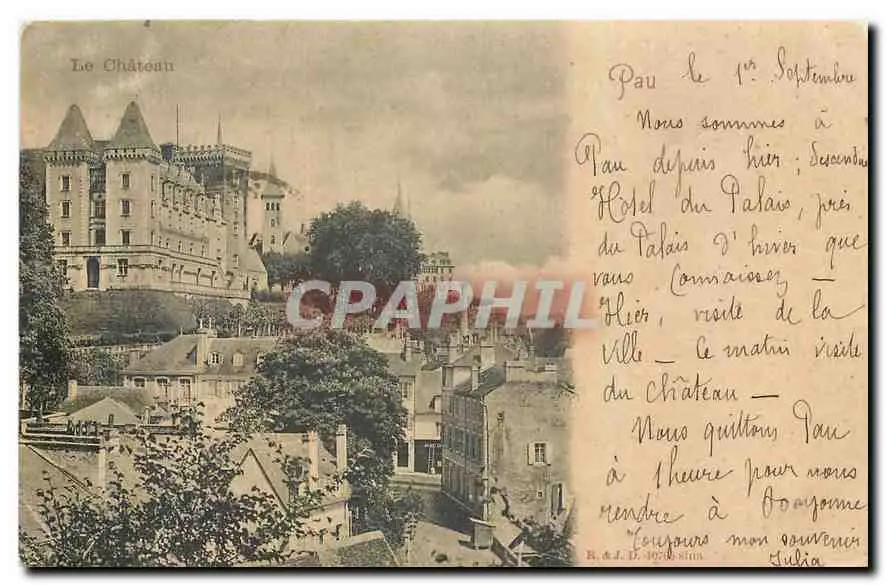 Le Château
CAPHIL
Pau le 1er Septembre
Nous sommes à
Pau depuis hier; Descendue
Hôtel du Palais, près
du Palais d'hiver que
vous connaissez —
Hier, visite de la
Ville — Ce matin visite
du Château —
Nous quittons Pau
à 1 heure pour nous
rendre à Bayonne
Toujours mon souvenir
Julia
R. & J. D.